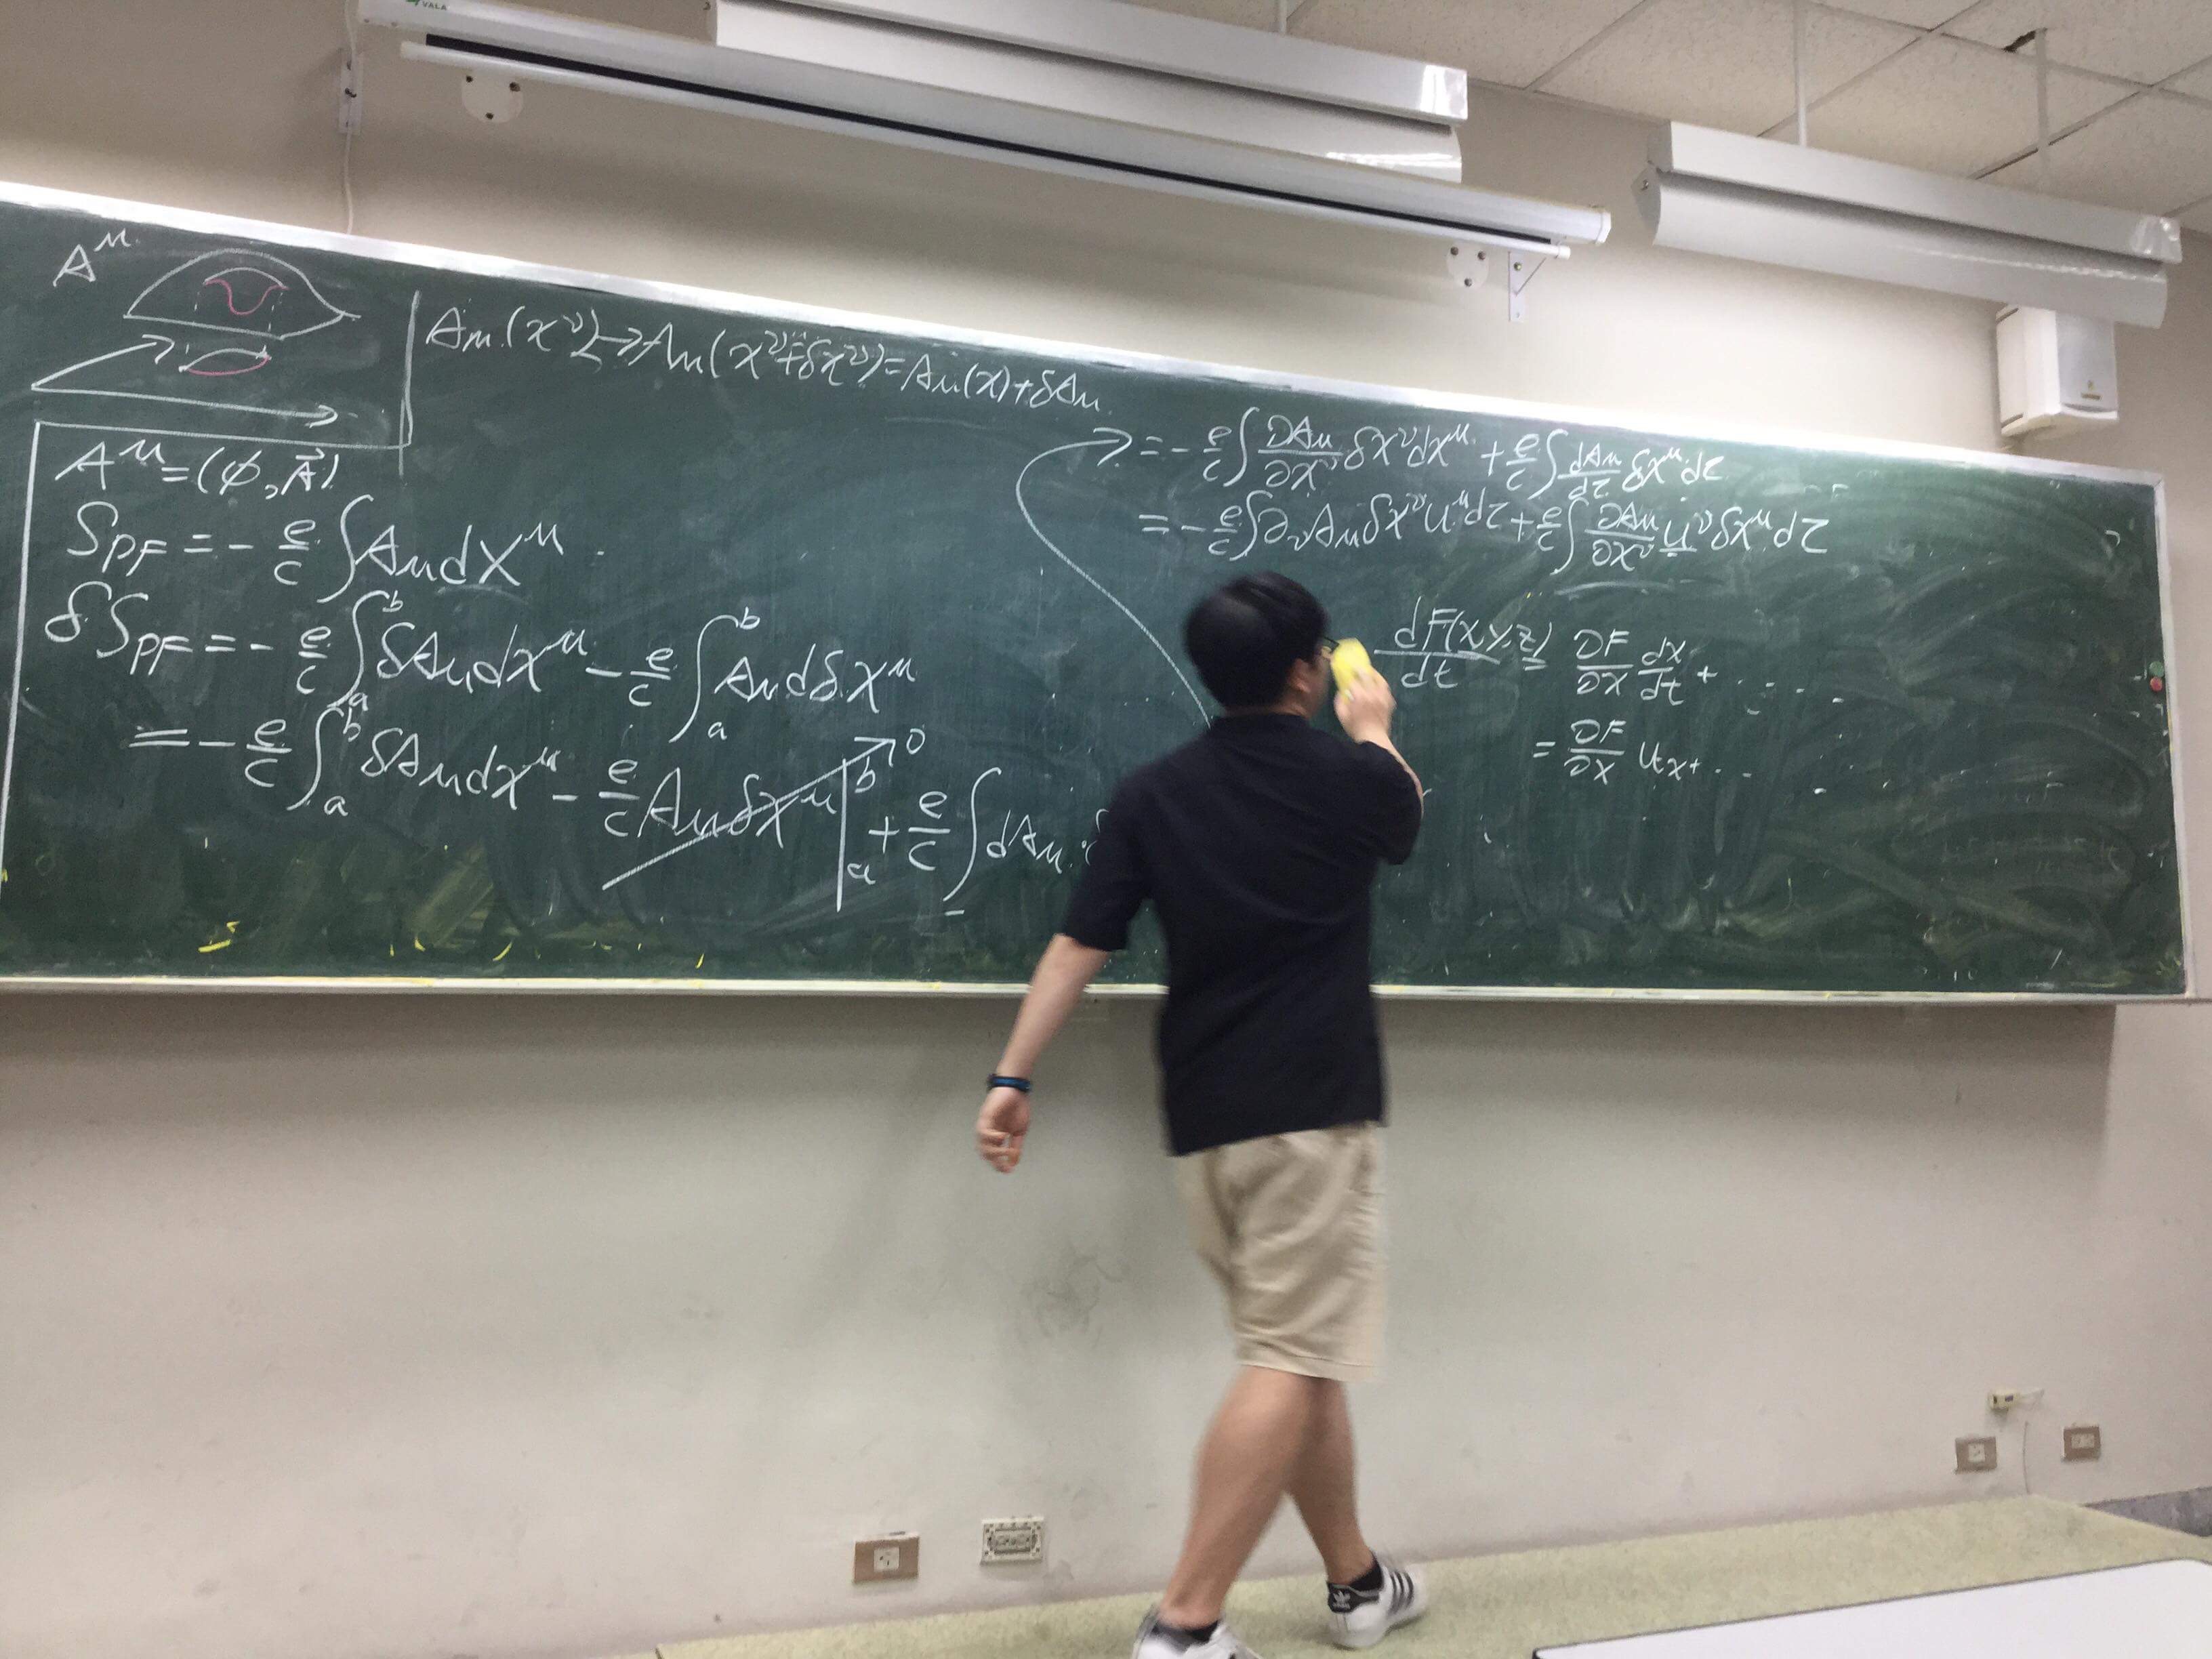 VALA
A^μ
A_μ(x^ν) → A_μ(x^ν+δx^ν) = A_μ(x)+δA_μ
A^μ = (φ, A⃗)
S_PF = - e/c ∫ A_μ dx^μ
δS_PF = - e/c ∫_a^b δA_μ dx^μ - e/c ∫_a^b A_μ dδx^μ
= - e/c ∫_a^b δA_μ dx^μ - e/c A_μ δx^μ |_a^b → 0 + e/c ∫ dA_μ
= - e/c ∫ ∂A_μ/∂x^ν δx^ν dx^μ + e/c ∫ dA_μ/dτ δx^μ dτ
= - e/c ∫ ∂_ν A_μ δx^ν u^μ dτ + e/c ∫ ∂A_μ/∂x^ν u^ν δx^μ dτ
dF(x,y,z)/dt = ∂F/∂x dx/dt + ....
= ∂F/∂x u_x + ...